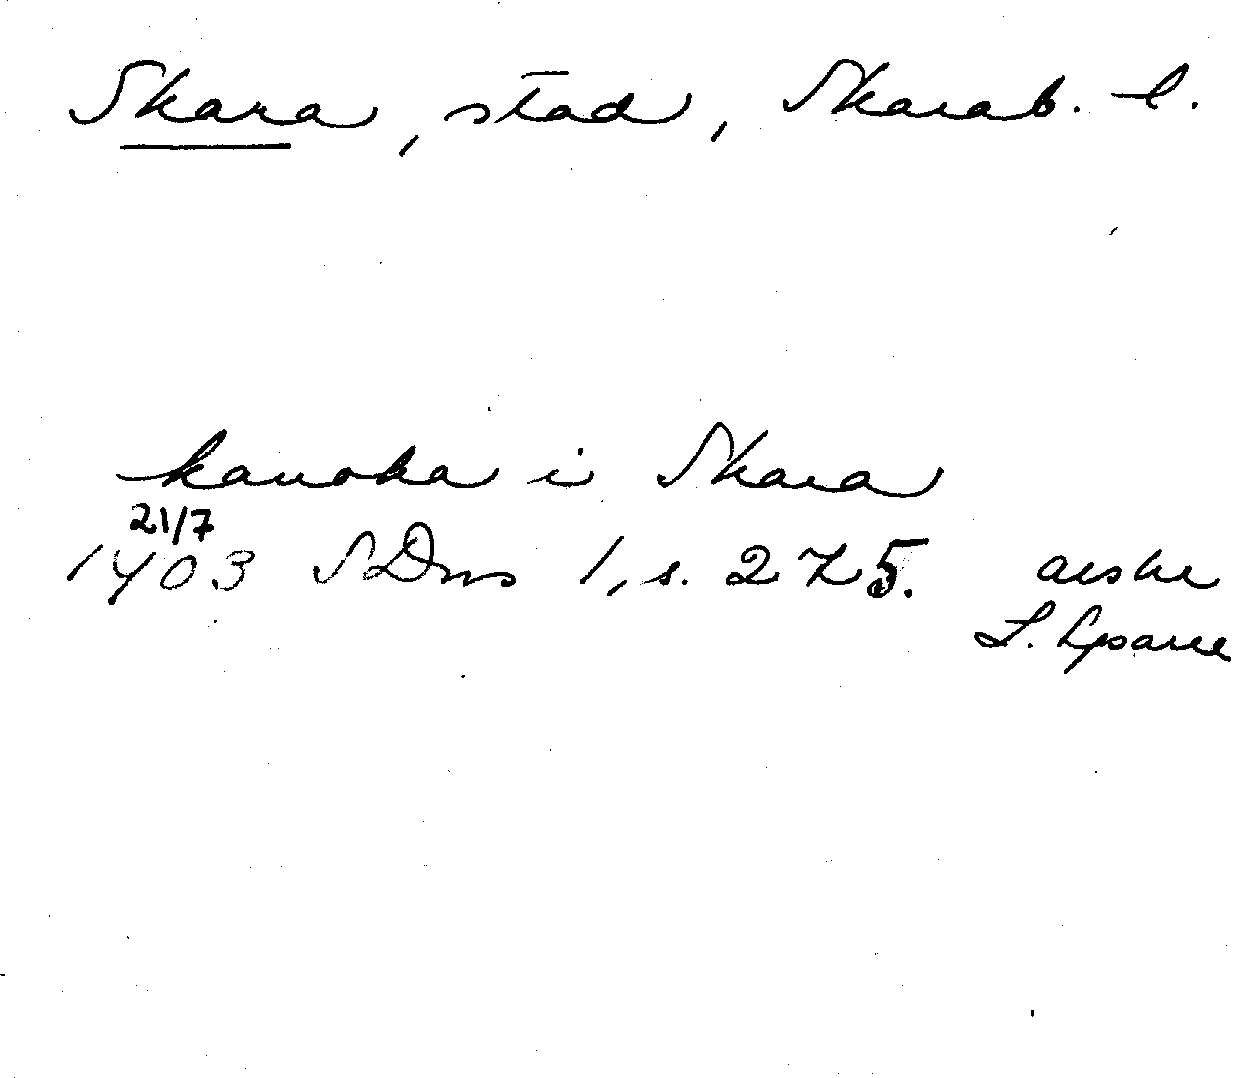 Skara, stad, Skarab. l.
kanoka i Skara
21/7
1403 SDns 1, s. 275. avskr
L. Sparre